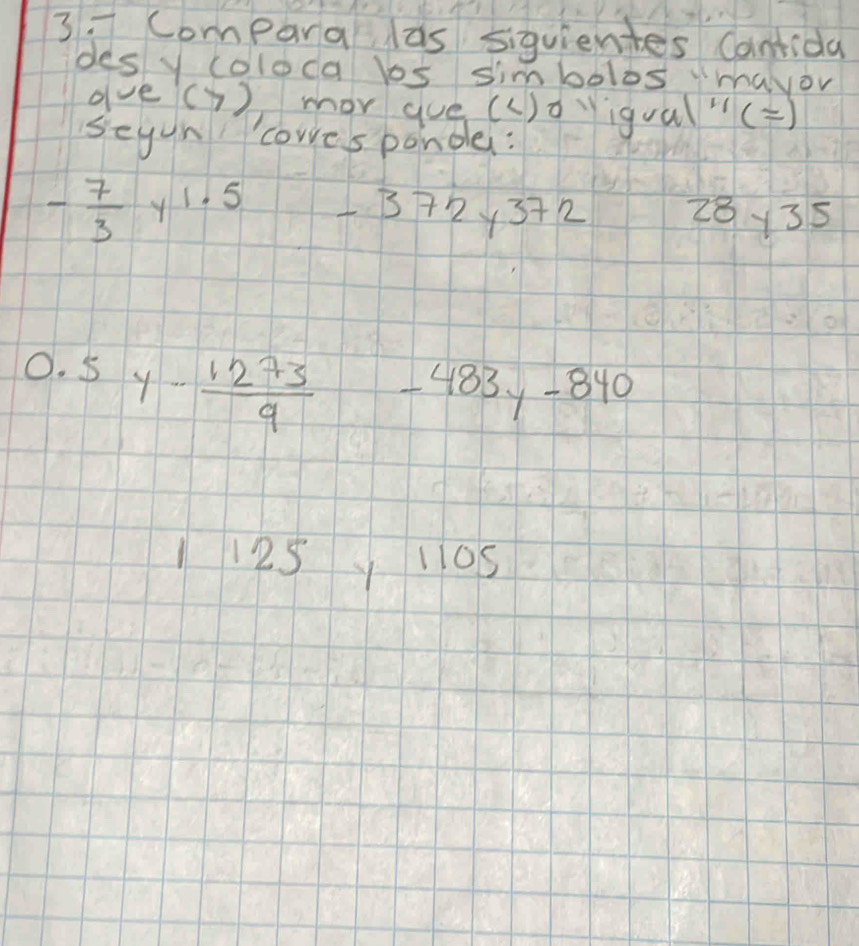 3.- Compara las siguientes cantida
des y coloca los simbolos "mayor
que (>) mor que (<) o "igual" (=)
segun corresponda:
- 7/3 y 1.5 - 372 y 372 28 y 35
0.5 y - 1273/9 - 483 y - 840
1 125 y 1105